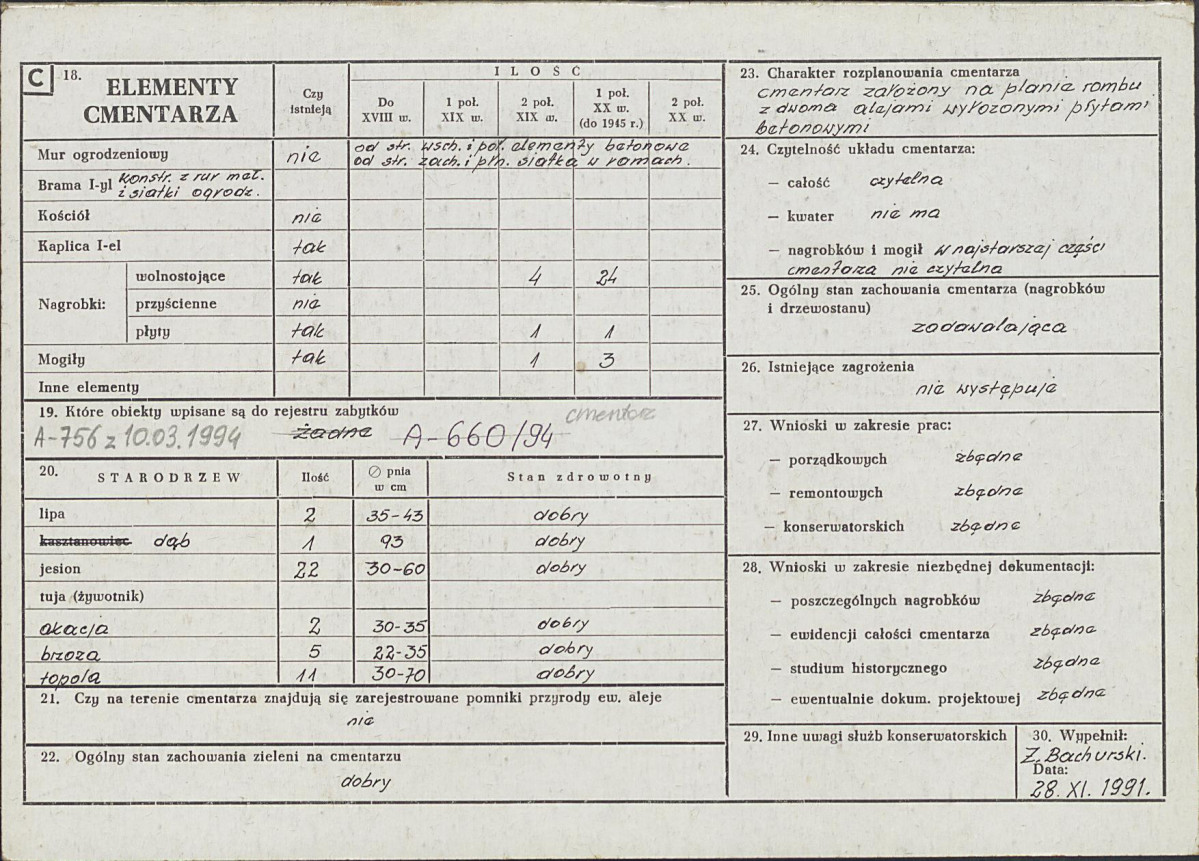 C 18. ELEMENTY CMENTARZA
Czy istnieją
ILOŚĆ
Do XVIII w.
1 poł. XIX w.
2 poł. XIX w.
1 poł. XX w. (do 1945 r.)
2 poł. XX w.
Mur ogrodzeniowy nie od str. wsch. i poł. elementy betonowe
od str. zach. i płn. siatka w ramach.
Brama I-yl konstr. z rur met.
i siatki ogrodz.
Kościół nie
Kaplica I-el tak
Nagrobki: wolnostojące tak 4 24
przyścienne nie
płyty tak 1 1
Mogiły tak 1 3
Inne elementy
19. Które obiekty wpisane są do rejestru zabytków cmentarz
A-756 z 10.03.1994 żadne A-660/94
20. STARODRZEW Ilość ∅ pnia w cm Stan zdrowotny
lipa 2 35-43 dobry
kasztanowiec dąb 1 93 dobry
jesion 22 30-60 dobry
tuja (żywotnik)
akacja 2 30-35 dobry
brzoza 5 22-35 dobry
topola 11 30-70 dobry
21. Czy na terenie cmentarza znajdują się zarejestrowane pomniki przyrody ew. aleje
nie
22. Ogólny stan zachowania zieleni na cmentarzu
dobry
23. Charakter rozplanowania cmentarza
cmentarz założony na planie rombu
z dwoma alejami wyłożonymi płytami
betonowymi
24. Czytelność układu cmentarza:
— całość czytelna
— kwater nie ma
— nagrobków i mogił w najstarszej części
cmentarza nie czytelna
25. Ogólny stan zachowania cmentarza (nagrobków
i drzewostanu)
zadawalająca
26. Istniejące zagrożenia
nie występuje
27. Wnioski w zakresie prac:
— porządkowych zbędne
— remontowych zbędne
— konserwatorskich zbędne
28. Wnioski w zakresie niezbędnej dokumentacji:
— poszczególnych nagrobków zbędne
— ewidencji całości cmentarza zbędne
— studium historycznego zbędne
— ewentualnie dokum. projektowej zbędne
29. Inne uwagi służb konserwatorskich
30. Wypełnił:
Z. Bachurski.
Data:
28. XI. 1991.